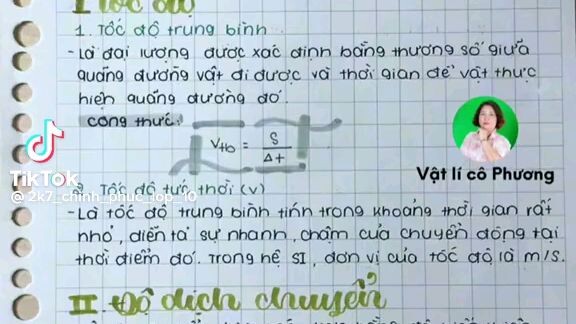 I Tốc độ
1. Tốc độ trung bình
- Là đại lượng được xác định bằng thương số giữa
quãng đường vật đi được và thời gian để vật thực
hiện quãng đường đó.
công thức:
Vtb = S / Δt
TikTok
@ 2k7_chinh_phuc_top_10
Vật lí cô Phương
2. Tốc độ tức thời (v)
- Là tốc độ trung bình tính trong khoảng thời gian rất
nhỏ, diễn tả sự nhanh, chậm của chuyển động tại
thời điểm đó. Trong hệ SI, đơn vị của tốc độ là m/s.
II. Độ dịch chuyển